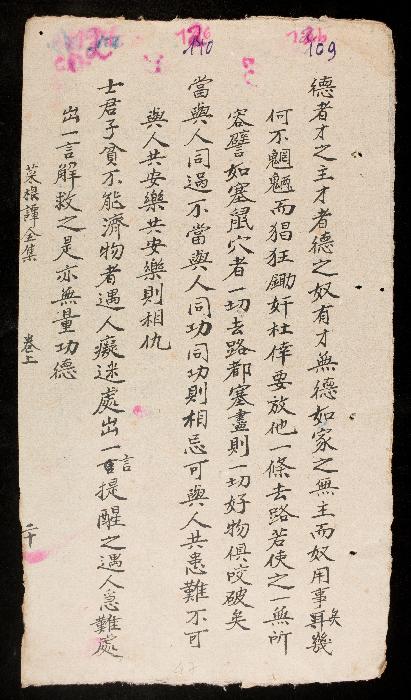 109
110
德者才之主才者德之奴有才無德如家之無主而奴用事矣幾
何不魍魎而猖狂鋤奸杜倖要放他一條去路若使之一無所
容譬如塞鼠穴者一切去路都塞盡則一切好物俱咬破矣
當與人同過不當與人同功同功則相忌可與人共患難不可
與人共安樂共安樂則相仇
士君子貧不能濟物者遇人癡迷處出一言提醒之遇人急難處
出一言解救之是亦無量功德
菜根譚全集 卷上 二十